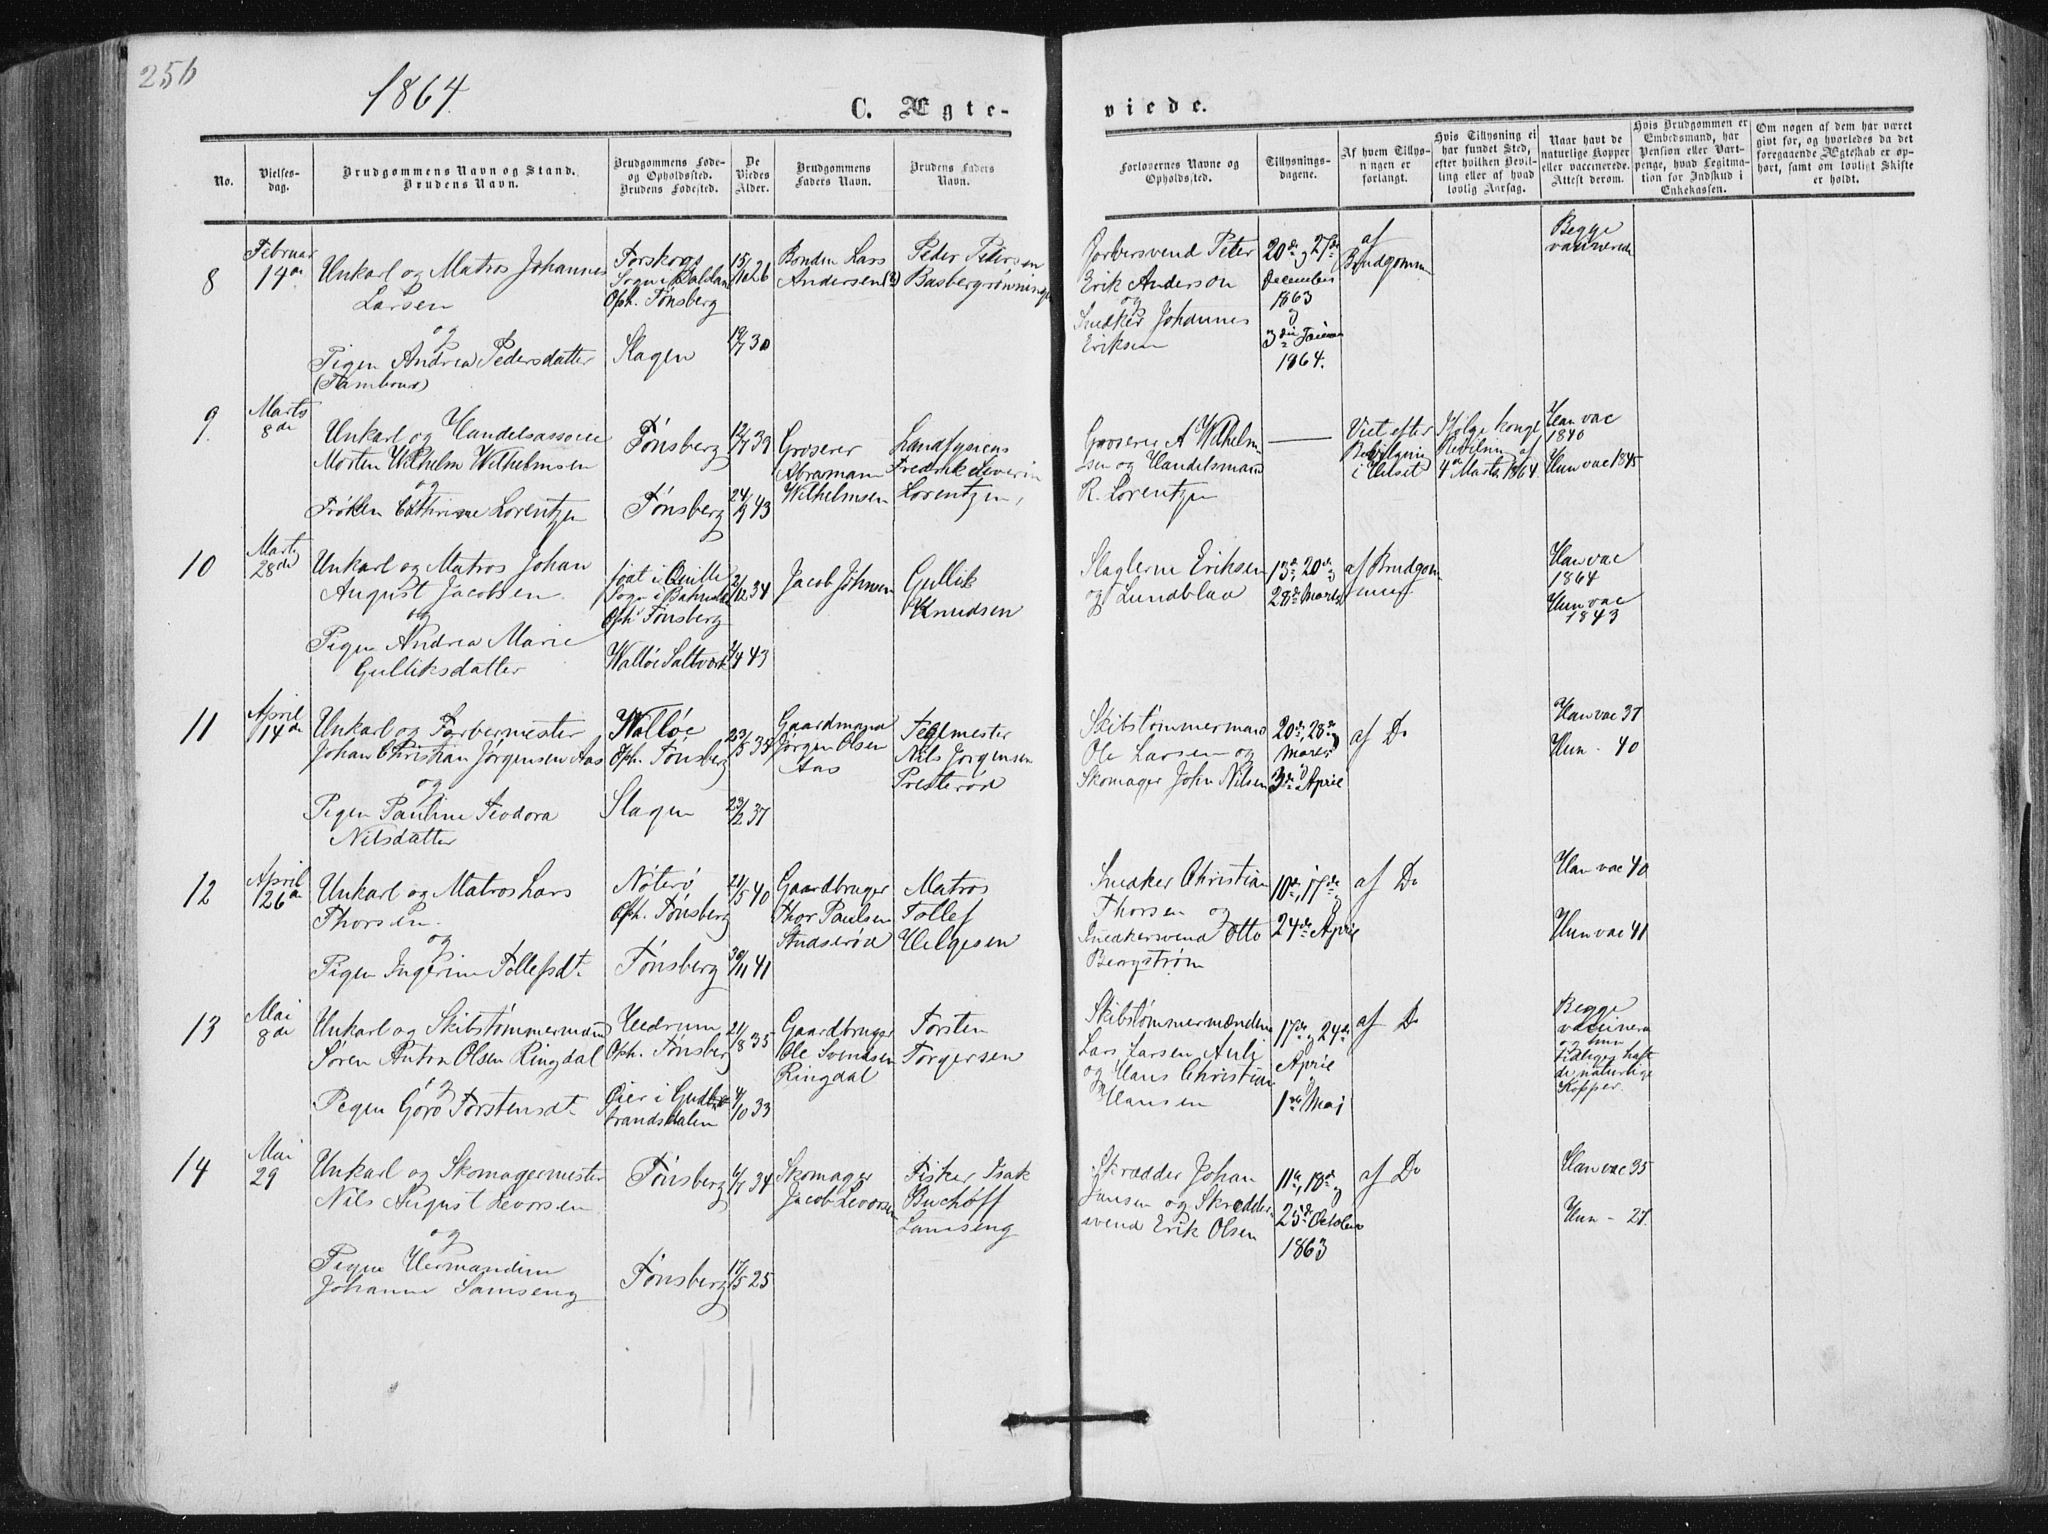 256
1864
C. Ægteviede.
No.
Vielses-
dag.
Brudgommens Navn og Stand.
Brudens Navn.
Brudgommens Føde-
og Opholdssted.
Brudens Fødested.
De
Viedes
Alder.
Brudgommens
Faders Navn.
Brudens Faders
Navn.
Forlovernes Navne og
Opholdssted.
Tillysnings-
dagene.
Af hvem Tillys-
ningen er
forlangt.
Hvis Tillysning ei
har fundet Sted,
efter hvilken Bevil-
ling eller af hvad
lovlig Aarsag.
Naar havt de
naturlige Kopper
eller vaccinerede.
Attest derom.
Hvis Brudgommen er
Embedsmand, har
Pension eller Vart-
penge, hvad Legitima-
tion for Indskud i
Enkekassen.
Om nogen af dem har været
givt før, og hvorledes da det
foregaaende Ægteskab er op-
hørt, samt om lovligt Skifte
er holdt.
8
Februar
14de
Unkarl og Matros Johannes
Larsen
og
Pigen Andrea Pedersdatter
Forskogs
Sogn i Dalsland
Oph. Tønsberg
Slagen
15/10 26
19/7 30
Bonden Lars
Andersen
Peder Pedersen
Basbergrønningen
Peter
Erik Anderson
og
Snedker Johannes
Eriksen
20de og 27de
December
1863
og
3die Januar
1864.
af
Brudgommen
Begge
vaccinerede
9
Marts
8de
Unkarl og Handelsassocie
Morten Wilhelm Wilhelmsen
og
Frøken Cathrine Lorentzen
Tønsberg
Tønsberg
12/7 39
43
Groserer
Abraman
Wilhelmsen
Landfysicus
Fredrik Severin
Lorentzen
Groserer A Wilhelm-
sen og Handelsmand
R. Lorentzen
Viet efter
Bevilgning
i Huset
Ifølge kongl
Bevilgning af
4de Marts 1864.
Han vac
1840
Hun vac 1845
10
Marts
28de
Unkarl og Matros Johan
August Jacobsen
og
Pigen Andrea Marie
Gulliksdatter
født i Quille
Sogn i Bahuslehn
Oph. Tønsberg
Walløe Saltværk
2/12 34
43
Jacob Johnsen
Gullik
Knudsen
Slaglerne Eriksen
og Lundblad
13de, 20de og
28de Marts
af Brudgom-
men
Han vac
1864
Hun vac
1843
11
April
14de
Unkarl og Farbermester
Johan Christian Jørgensen Aas
og
Pigen Pauline Teodora
Nilsdatter
Walløe
Oph. Tønsberg
Slagen
23/5 35
23/2 37
Gaardmand
Jørgen Olsen
Aas
Teglmester
Nils Jørgensen
Presterød
Skibstømmermand
Ole Larsen og
Skomager John Nilsen
20de, 28de
Marts og
3die April
af Do
Han vac 37
Hun - 40
12
April
26de
Unkarl og Matros Lars
Thorsen
og
Pigen Ingerine Tollefsdt.
Nøterø
Oph. Tønsberg
Tønsberg
21/5 40
30/11 41
Gaardbruger
Thor Paulsen
Stadserød
Matros
Tollef
Helgesen
Snedker Christian
Thorsen og
Snedkersvend Otto
Bergstrøm
10de, 17de og
24de April
af Do
Han vac 40
Hun vac 41
13
Mai
8de
Unkarl og Skibstømmermand
Søren Anton Olsen Ringdal
og
Pigen Goro Torstensdt.
Hedrum
Oph. Tønsberg
Øier i Gudbrandsdalen
21/8 35
4/10 33
Gaardbruger
Ole Svendsen
Ringdal
Torsten
Torgersen
Skibstømmermændene
Lars Larsen Auli
og Hans Christian
Hansen
17de og 24de
April
og
1ste Maj
af Do
Begge
vaccinera
og hun
tidliger haft
de naturlige
Kopper.
14
Mai
29
Unkarl og Skomagermester
Nils August Levorsen
og
Pigen Hermandine
Johanne Samseng
Tønsberg
Tønsberg
6/7 34
17/5 25
Skomager
Jacob Levorsen
Fisker Isak
Buchoff
Samseng
Skrædder Johan
Jansen og Skrædder-
svend Erik Olsen
11te, 18de og
25de October
1863
af Do
Han vac 35
Hun - 27.